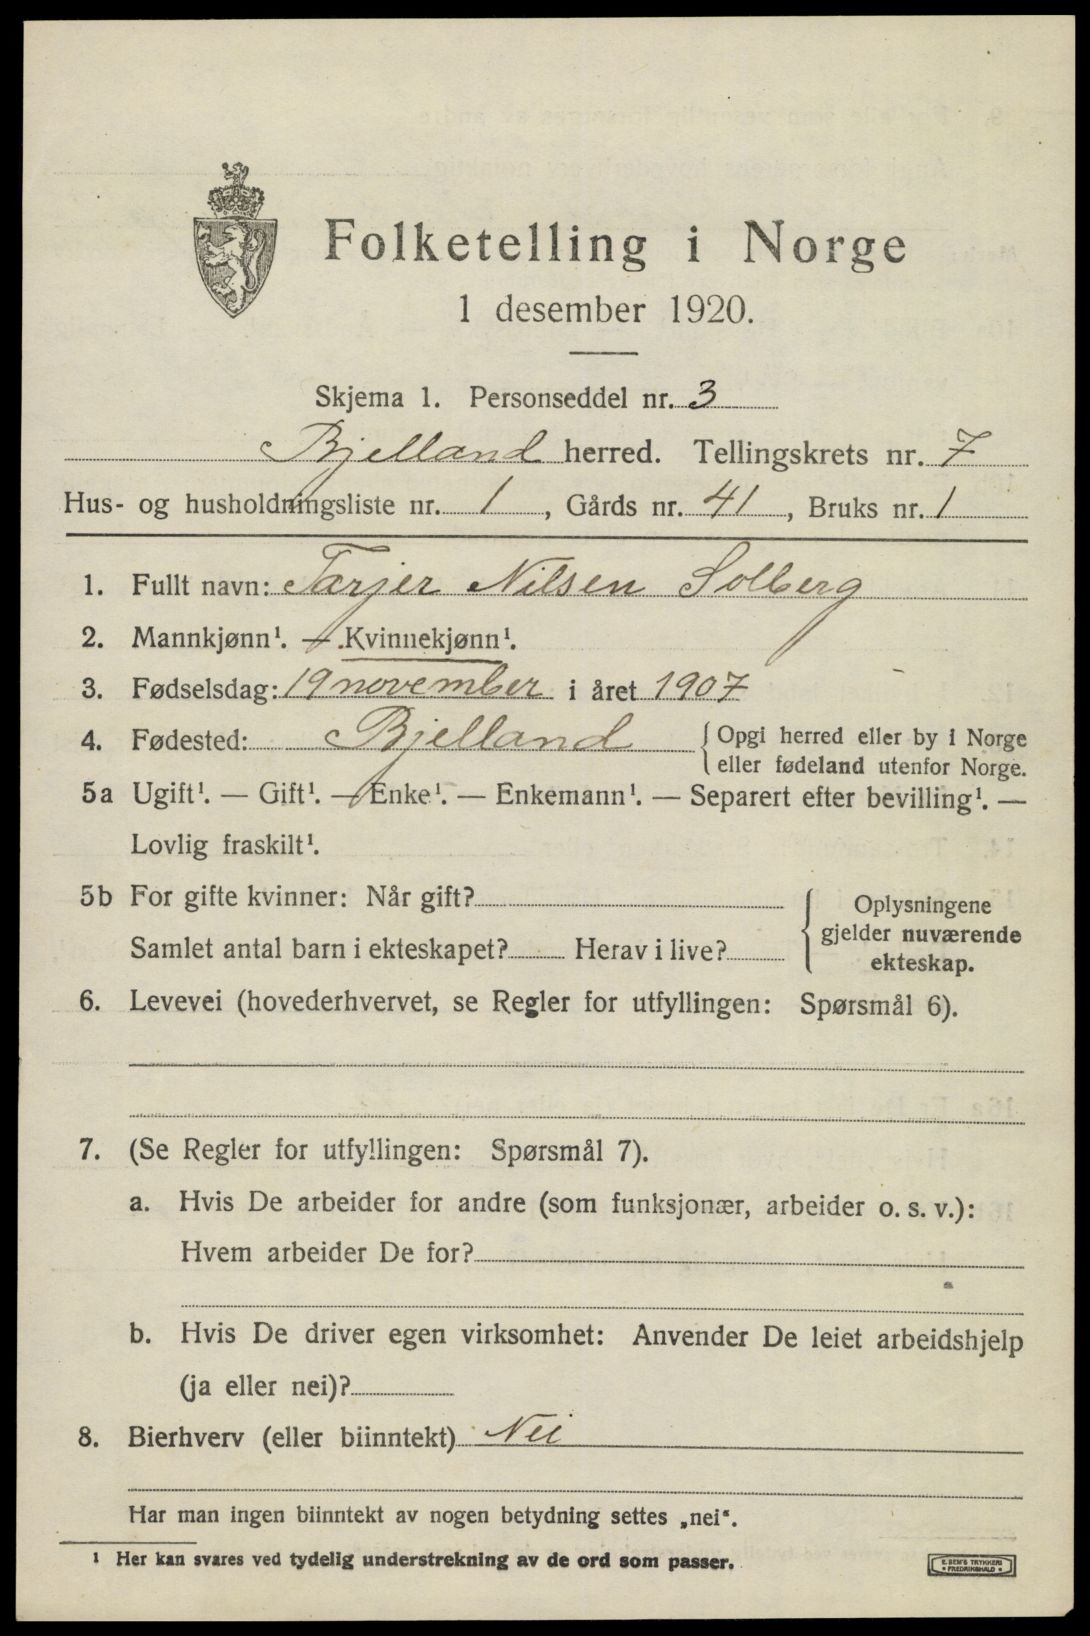 Folketelling i Norge
1 desember 1920.
Skjema 1. Personseddel nr. 3
Bjelland herred. Tellingskrets nr. 7
Hus- og husholdningsliste nr. 1, Gårds nr. 41, Bruks nr. 1
1. Fullt navn: Tarjer Nilsen Solberg
2. Mannkjønn¹. — Kvinnekjønn¹.
3. Fødselsdag: 19 november i året 1907
4. Fødested: Bjelland { Opgi herred eller by i Norge
eller fødeland utenfor Norge.
5a Ugift¹. — Gift¹. — Enke¹. — Enkemann¹. — Separert efter bevilling¹. —
Lovlig fraskilt¹.
5b For gifte kvinner: Når gift?
Samlet antal barn i ekteskapet? Herav i live?
{ Oplysningene
gjelder nuværende
ekteskap.
6. Levevei (hovederhvervet, se Regler for utfyllingen: Spørsmål 6).
7. (Se Regler for utfyllingen: Spørsmål 7).
a. Hvis De arbeider for andre (som funksjonær, arbeider o. s. v.):
Hvem arbeider De for?
b. Hvis De driver egen virksomhet: Anvender De leiet arbeidshjelp
(ja eller nei)?
8. Bierhverv (eller biinntekt) Nei
Har man ingen biinntekt av nogen betydning settes „nei“.
¹ Her kan svares ved tydelig understrekning av de ord som passer.
E. SEM'S TRYKKERI
• FREDRIKSHALD •